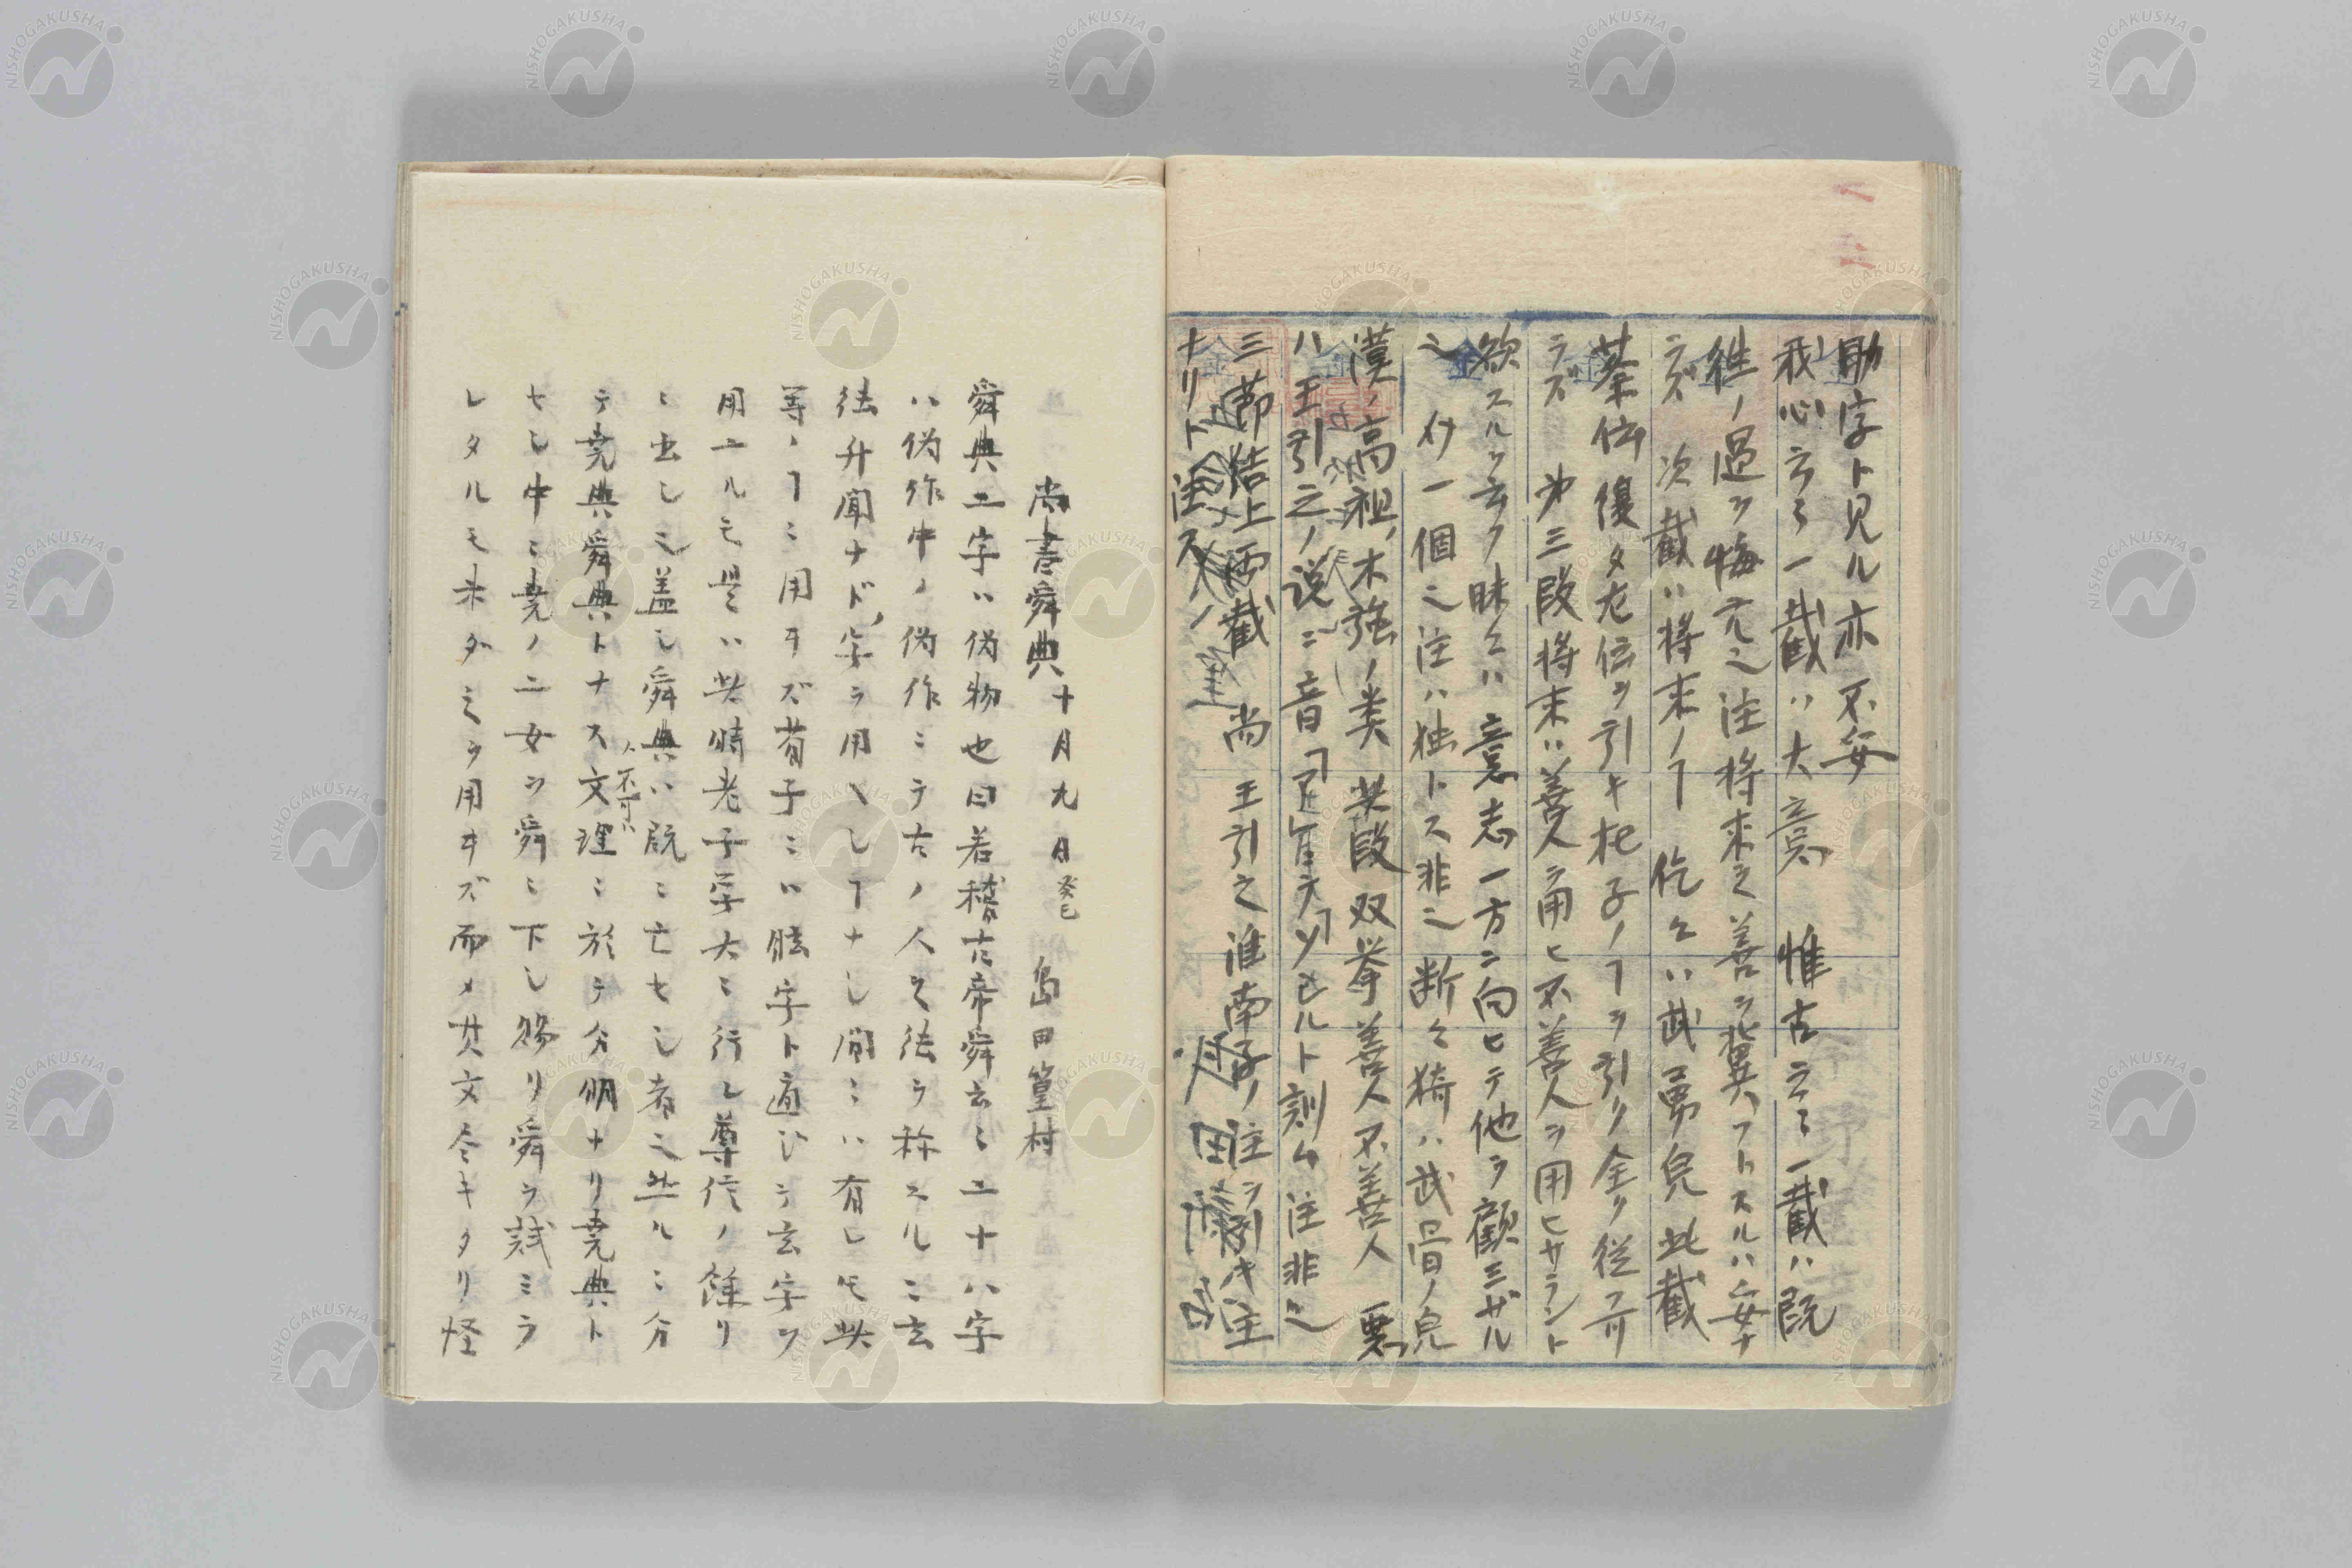 助字ト見ル亦不妥
我心云々一截ハ大意 惟古云々一截ハ既
往ノ過ヲ悔亢之注将来之善ヲ冀フトスルハ妥ナ
ラズ 次截ハ将来ノヿ 仡々ハ武勇皃此截
蔡伝僂タ左伝ヲ引キ杞子ノヿヲ引ク全ク従フ可
ラズ 第三段将来ハ善人ヲ用ヒ不善人ヲ用ヒサラント
欲スルヲ云フ昧々ハ意志一方ニ向ヒテ他ヲ顧ミザル
之 介一個之注ハ独トス非之断々猗ハ武㫺ノ皃
漢ノ高祖ノ木強ノ類 其段双挙善人不善人 悪
ハ王引之ノ説ニ音
三節結上両截 尚 王引之淮南子ノ注ヲ引キ主
ナリト注ス
尚書舜典 十月九日 癸巳 島田篁村
舜典二字ハ偽物也曰若稽古帝舜云々二十八字
ハ偽作中ノ偽作ニテ古ノ人之法ヲ称スルニ玄
徳升聞ナド字ヲ用ヘシヿナシ間ニハ有レモ此
等ノヿニ用ヰズ荀子ニハ眩字ト通ジテ玄字ヲ
用ユルモ是ハ此時老子学大ニ行レ尊信ノ餘リ
ニ出シ之蓋し舜典ハ既ニ亡セシ者之然ルニ分
テ堯典舜典トナス不可ハ文理ニ於テ分明ナリ堯典ト
セシ中ニ堯ノ二女ヲ舜ニ下し賜リ舜ヲ試ミラ
レタルモ未タ之ヲ用ヰズ而メ其文今キタリ怪
NISHOGAKUSHA